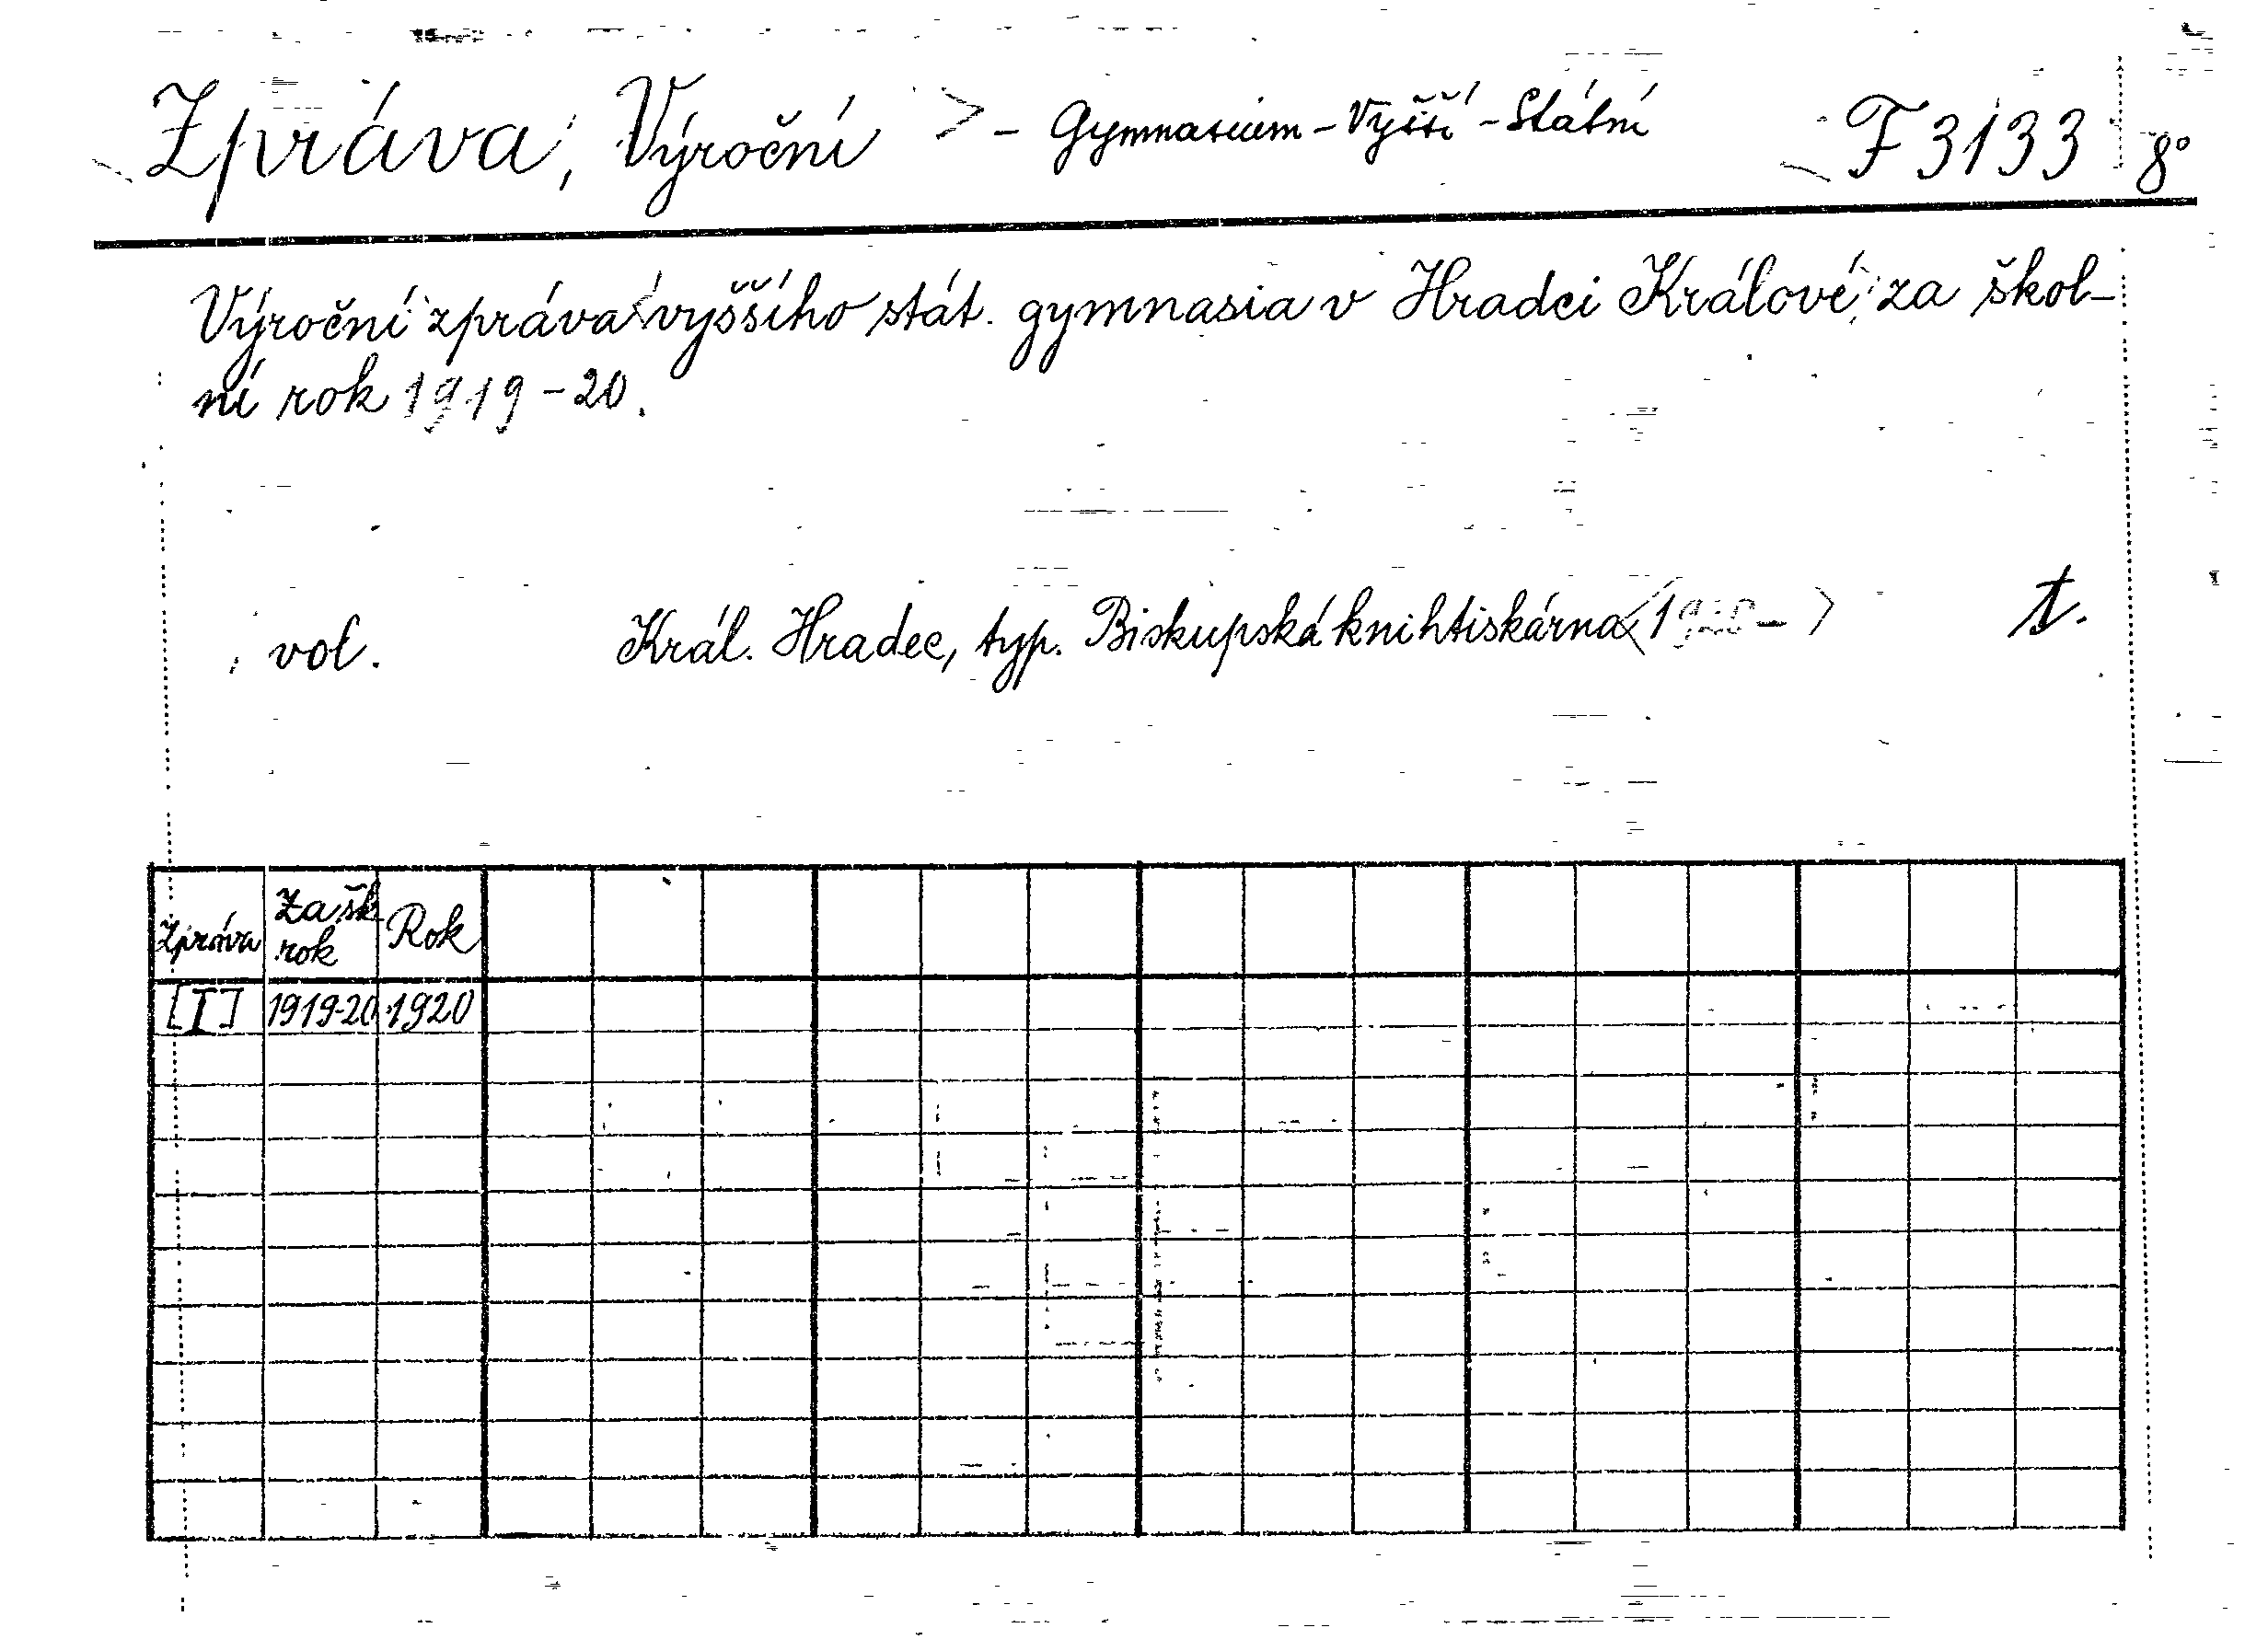 Zpráva, Výroční > - Gymnasium - Vyšší - Státní F 3133 8°
Výroční zpráva vyššího stát. gymnasia v Hradci Králové za škol-
ní rok 1919-20.
vol. Král. Hradec, typ. Biskupská knihtiskárna <1920- > t.
Zpráva Za šk. rok Rok
[I] 1919-20 1920